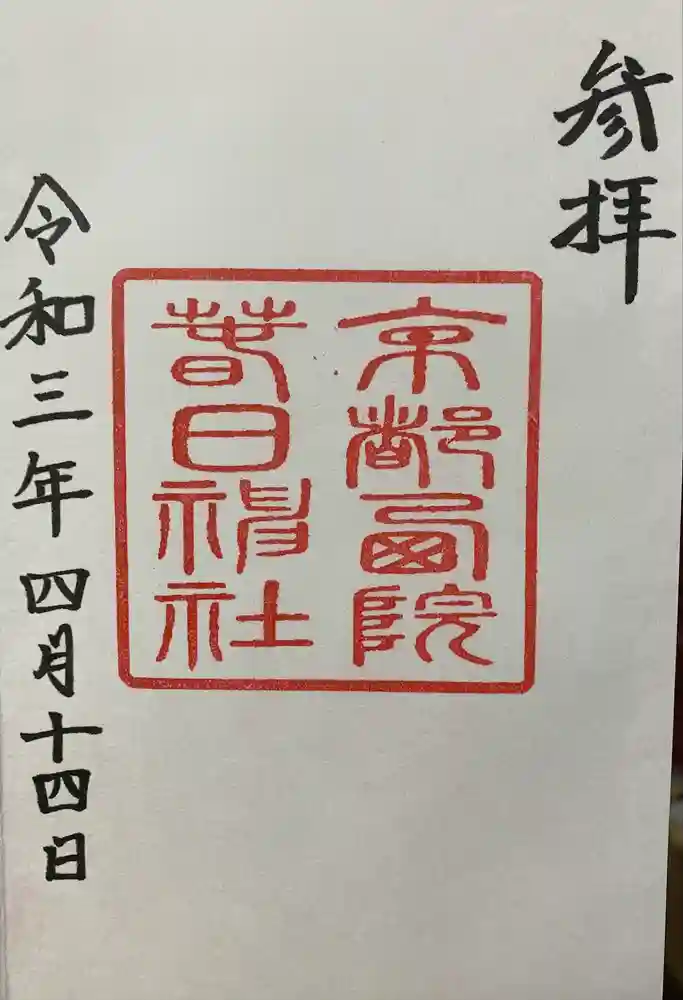 参拝
京都西院
春日神社
令和三年四月十四日